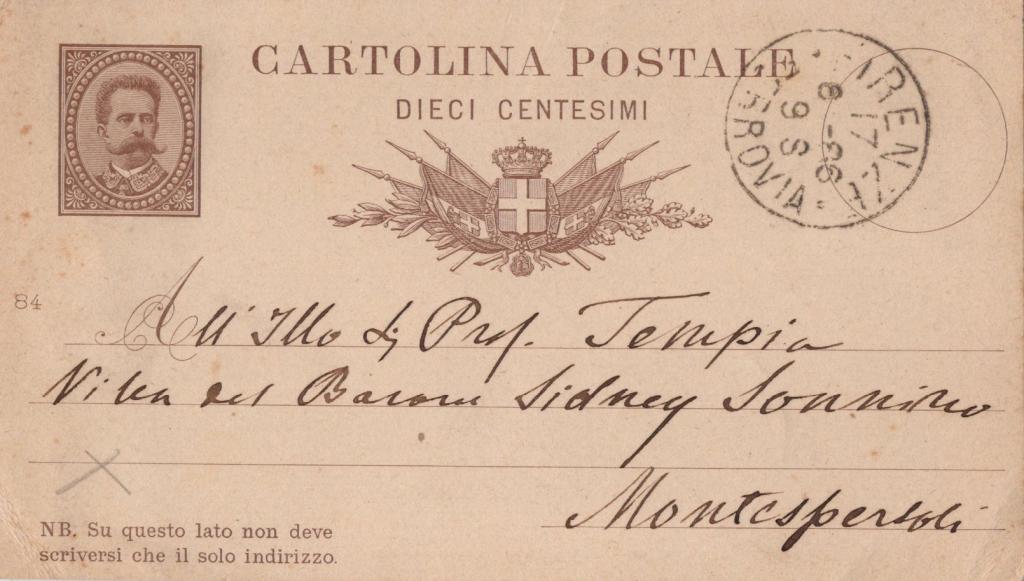 CARTOLINA POSTALE
DIECI CENTESIMI
FIRENZE
17
8-86
9 S
FERROVIA
84
All' Illo Sig. Prof. Tempia
Villa del Barone Sidney Sonnino
Montespertoli
NB. Su questo lato non deve
scriversi che il solo indirizzo.